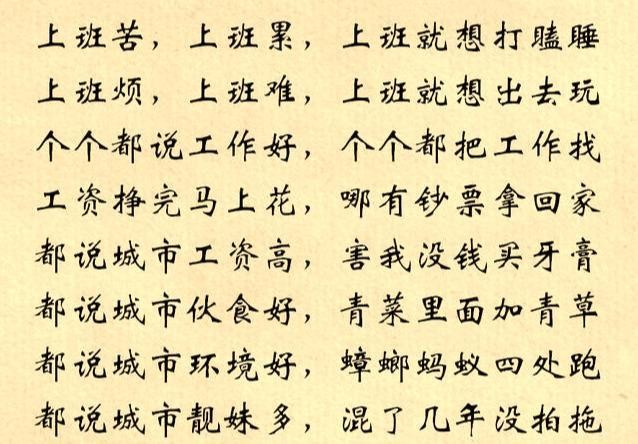 上班苦，上班累，上班就想打瞌睡
上班烦，上班难，上班就想出去玩
个个都说工作好，个个都把工作找
工资挣完马上花，哪有钞票拿回家
都说城市工资高，害我没钱买牙膏
都说城市伙食好，青菜里面加青草
都说城市环境好，蟑螂蚂蚁四处跑
都说城市靓妹多，混了几年没拍拖